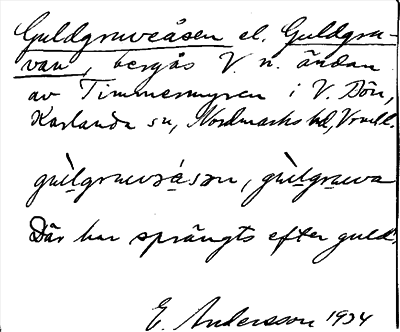 Guldgruveåsen el. Guldgru-
van, bergås V. n. ändan
av Timmermyren i V. Bön,
Karlanda sn, Nordmarks hd, Vrml.
gu̇̀lgruvəá̱sən, gu̇̀lgru̱va
Där har sprängts efter guld.
E. Andersson 1934